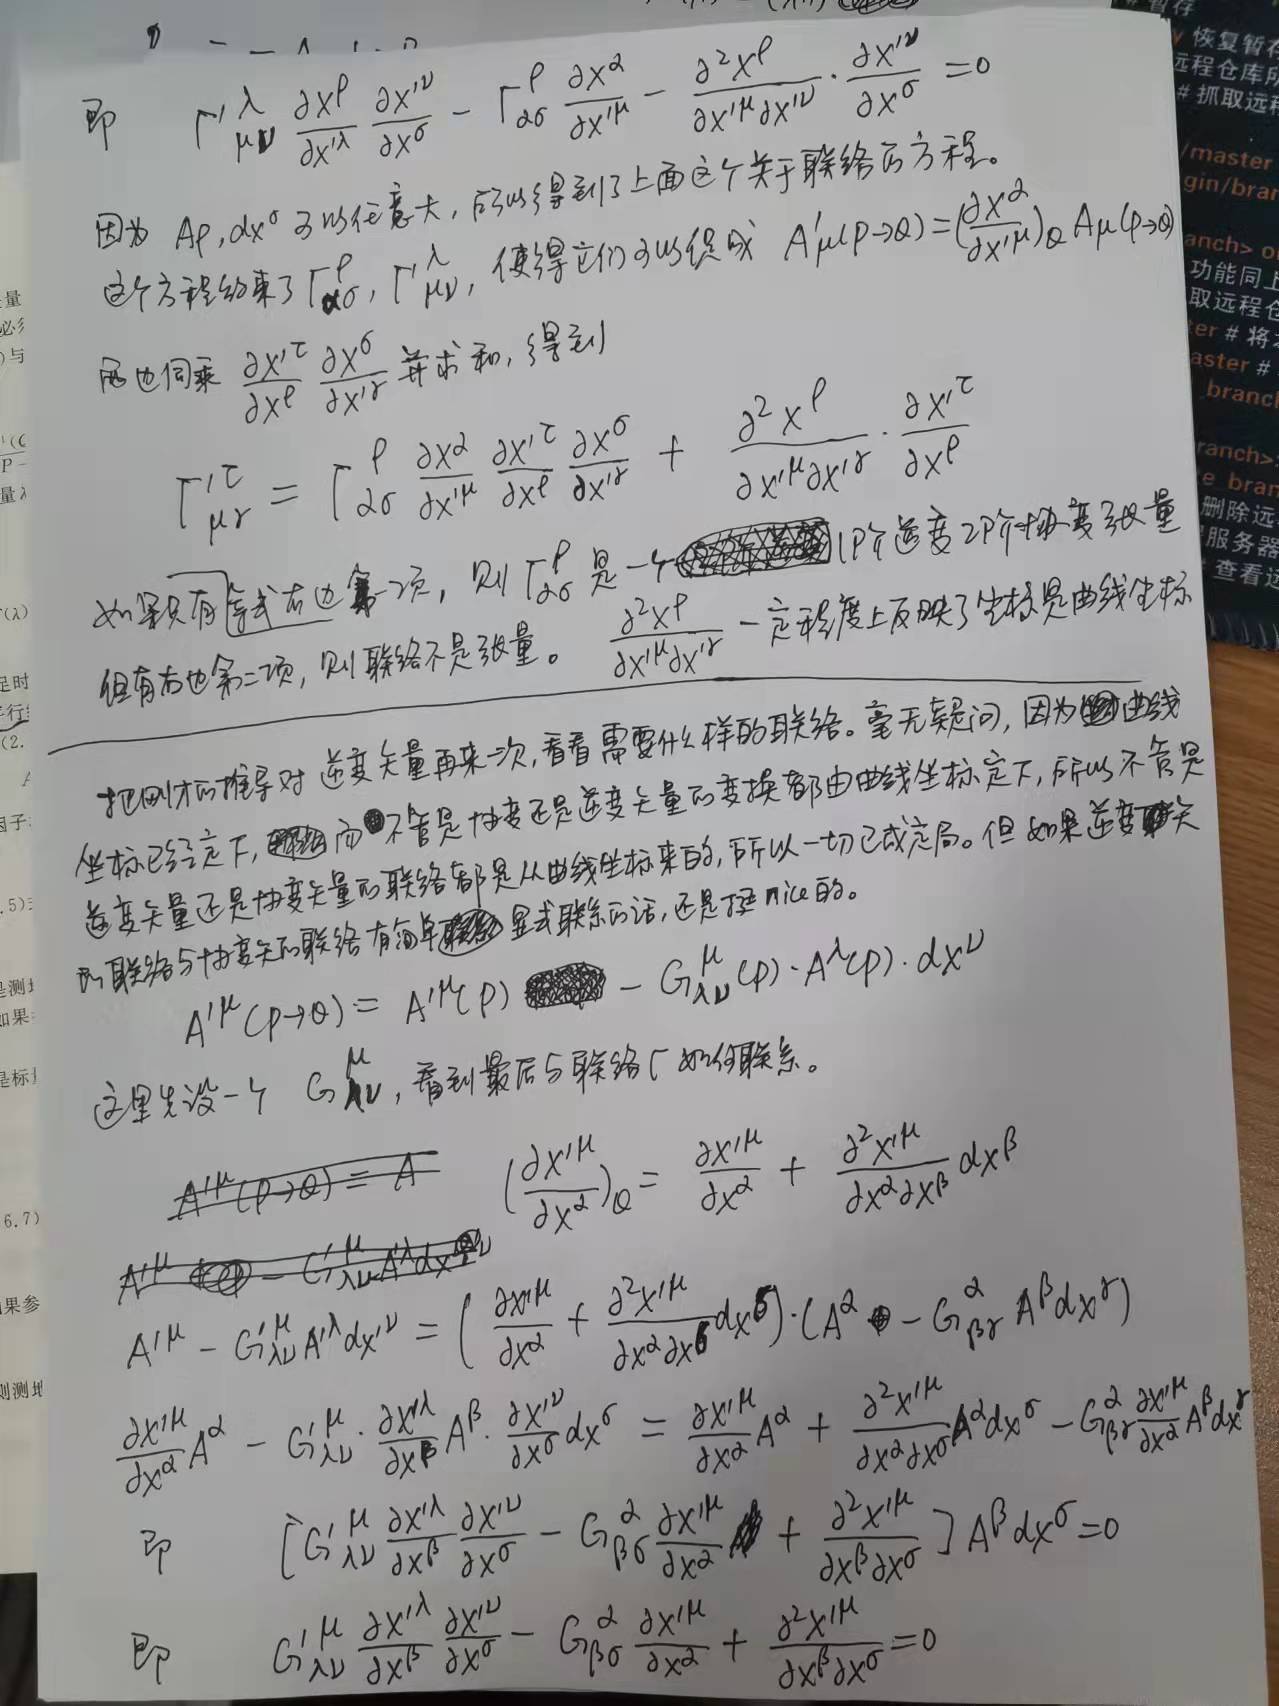 即 Γ'^λ_{μν} ∂x^ρ/∂x'^λ ∂x'^ν/∂x^σ − Γ^ρ_{ασ} ∂x^α/∂x'^μ − ∂²x^ρ/∂x'^μ∂x'^ν · ∂x'^ν/∂x^σ = 0
因为 Aρ, dx^σ 可以任意大，所以得到了上面这个关于联络的方程。
这个方程约束了 Γ^ρ_{ασ}, Γ'^λ_{μν}, 使得它们可以织成 A'μ(P→Q) = (∂x^α/∂x'^μ)_Q Aμ(P→Q)
两边同乘 ∂x'^τ/∂x^ρ ∂x^σ/∂x'^γ 并求和，得到
Γ'^τ_{μγ} = Γ^ρ_{ασ} ∂x^α/∂x'^μ ∂x'^τ/∂x^ρ ∂x^σ/∂x'^γ + ∂²x^ρ/∂x'^μ∂x'^γ · ∂x'^τ/∂x^ρ
如果只有等式右边第一项，则 Γ^ρ_{ασ} 是一个 1阶逆变2阶协变张量
但有右边第二项，则联络不是张量。 ∂²x^ρ/∂x'^μ∂x'^γ 一定程度上反映了坐标是曲线坐标
把刚才的推导对逆变矢量再来一次，看看需要什么样的联络。毫无疑问，因为曲线
坐标已经定下，而不管是协变还是逆变矢量的变换都由曲线坐标定下，所以不管是
逆变矢量还是协变矢量的联络都是从曲线坐标来的，所以一切已成定局。但如果逆变矢
的联络与协变矢的联络有简单显式联系的话，还是挺nice的。
A'^μ(P→Q) = A'^μ(P) − G^μ_{λν}(P)·A^λ(P)·dx^ν
这里先设一个 G^μ_{λν}, 看到最后与联络Γ如何联系。
(∂x'^μ/∂x^α)_Q = ∂x'^μ/∂x^α + ∂²x'^μ/∂x^α∂x^β dx^β
A'^μ − G'^μ_{λν}A'^λdx'^ν = (∂x'^μ/∂x^α + ∂²x'^μ/∂x^α∂x^σ dx^σ)·(A^α − G^α_{βγ} A^βdx^γ)
∂x'^μ/∂x^α A^α − G'^μ_{λν}·∂x'^λ/∂x^β A^β·∂x'^ν/∂x^σ dx^σ = ∂x'^μ/∂x^α A^α + ∂²x'^μ/∂x^α∂x^σ A^αdx^σ − G^α_{βγ} ∂x'^μ/∂x^α A^βdx^γ
即 [G'^μ_{λν} ∂x'^λ/∂x^β ∂x'^ν/∂x^σ − G^α_{βσ} ∂x'^μ/∂x^α + ∂²x'^μ/∂x^β∂x^σ] A^βdx^σ = 0
即 G'^μ_{λν} ∂x'^λ/∂x^β ∂x'^ν/∂x^σ − G^α_{βσ} ∂x'^μ/∂x^α + ∂²x'^μ/∂x^β∂x^σ = 0